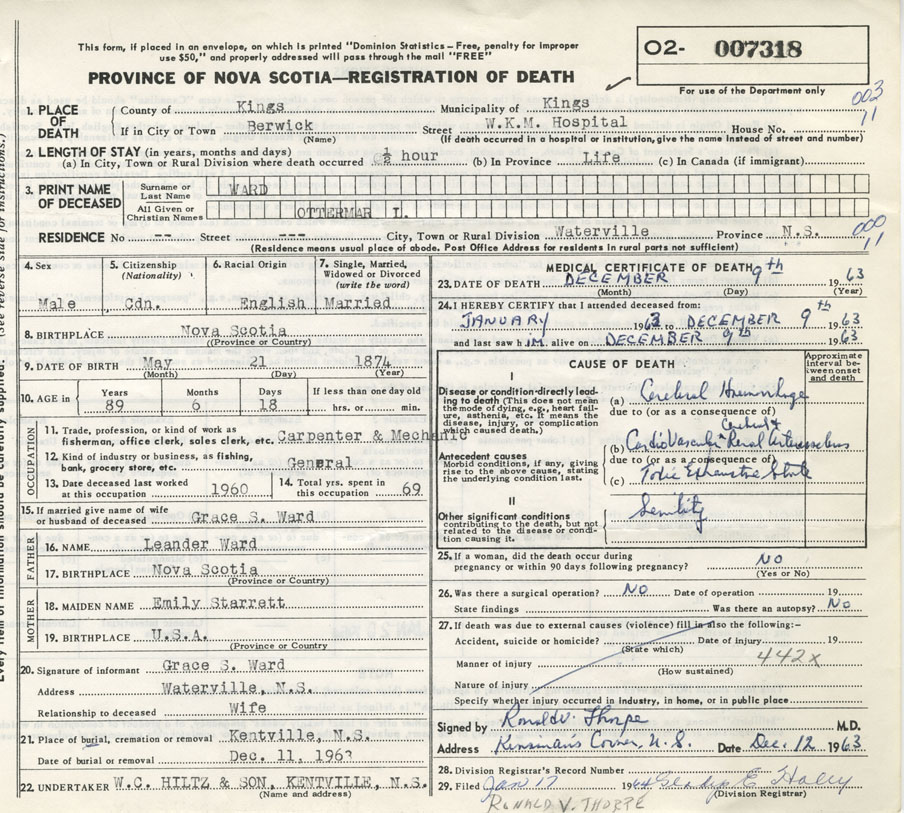 This form, if placed in an envelope, on which is printed "Dominion Statistics – Free, penalty for improper
use $50," and properly addressed will pass through the mail "FREE"
O2- 007318
For use of the Department only
PROVINCE OF NOVA SCOTIA—REGISTRATION OF DEATH
003
11
1. PLACE OF DEATH
County of Kings Municipality of Kings
If in City or Town Berwick Street W.K.M. Hospital House No.
(Name) (If death occurred in a hospital or institution, give the name instead of street and number)
2. LENGTH OF STAY (in years, months and days)
(a) In City, Town or Rural Division where death occurred ½ hour (b) In Province Life (c) In Canada (if immigrant)
3. PRINT NAME OF DECEASED
Surname or Last Name WARD
All Given or Christian Names OTTERMAR L.
RESIDENCE No -- Street --- City, Town or Rural Division Waterville Province N.S.
(Residence means usual place of abode. Post Office Address for residents in rural parts not sufficient)
000
11
4. Sex Male
5. Citizenship (Nationality) Cdn.
6. Racial Origin English
7. Single, Married, Widowed or Divorced (write the word) Married
8. BIRTHPLACE Nova Scotia
(Province or Country)
9. DATE OF BIRTH May 21 1874
(Month) (Day) (Year)
10. AGE in Years 89 Months 6 Days 18 If less than one day old hrs. or min.
OCCUPATION
11. Trade, profession, or kind of work as
fisherman, office clerk, sales clerk, etc. Carpenter & Mechanic
12. Kind of industry or business, as fishing,
bank, grocery store, etc. General
13. Date deceased last worked
at this occupation 1960
14. Total yrs. spent in
this occupation 69
15. If married give name of wife
or husband of deceased Grace S. Ward
FATHER
16. NAME Leander Ward
17. BIRTHPLACE Nova Scotia
(Province or Country)
MOTHER
18. MAIDEN NAME Emily Starrett
19. BIRTHPLACE U.S.A.
(Province or Country)
20. Signature of informant Grace S. Ward
Address Waterville, N.S.
Relationship to deceased Wife
21. Place of burial, cremation or removal Kentville, N.S.
Date of burial or removal Dec. 11, 1963
22. UNDERTAKER W.C. HILTZ & SON, KENTVILLE, N.S.
(Name and address)
MEDICAL CERTIFICATE OF DEATH
23. DATE OF DEATH DECEMBER 9th 1963
(Month) (Day) (Year)
24. I HEREBY CERTIFY that I attended deceased from:
JANUARY 1963 to DECEMBER 9th 1963
and last saw h IM alive on DECEMBER 9th 1963
CAUSE OF DEATH
Approximate interval between onset and death
I
Disease or condition directly leading to death (This does not mean
the mode of dying, e.g., heart failure, asthenia, etc. It means the
disease, injury, or complication
which caused death.)
(a) Cerebral Hemorrhage
due to (or as a consequence of)
Antecedent causes
Morbid conditions, if any, giving
rise to the above cause, stating
the underlying condition last.
Cerebral &
(b) CardioVascular Renal
due to (or as a consequence of)
(c) Toxic Exhaustive State
II
Other significant conditions
contributing to the death, but not
related to the disease or condition causing it.
Senility
25. If a woman, did the death occur during
pregnancy or within 90 days following pregnancy? NO
(Yes or No)
26. Was there a surgical operation? NO Date of operation 19
State findings Was there an autopsy? No
27. If death was due to external causes (violence) fill in also the following:–
Accident, suicide or homicide? Date of injury 19
(State which)
Manner of injury 442x
(How sustained)
Nature of injury
Specify whether injury occurred in industry, in home, or in public place
Signed by Ronald V. Thorpe M.D.
Address Kinsman's Corner, N.S. Date Dec. 12 1963
28. Division Registrar's Record Number
29. Filed Jan 17 1964 Gladys E Haley
(Division Registrar)
RONALD V. THORPE